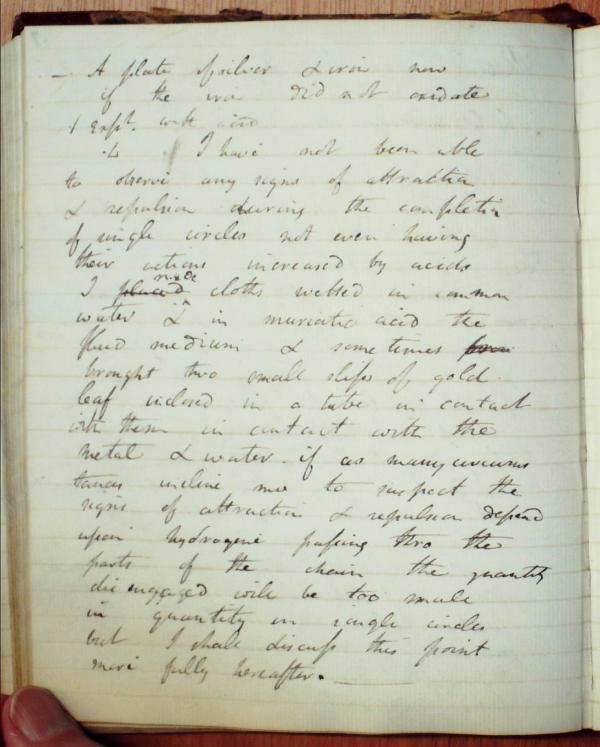 — A plate of silver & iron now
if the iron did not oxidate
1 Expt. with acid
·4 I have not been able
to observe any signs of attraction
& repulsion during the completion
of single circles not even having
their actions increased by acids
I placed made cloths wetted in common
water & in muriatic acid the
fluid medium & sometimes
brought two small slips of gold
leaf inclosed in a tube in contact
with them in contact with the
metal & water. if as many circums
tances incline me to suspect the
signs of attraction & repulsion depend
upon hydrogene passing thro the
parts of the chain the quantity
disengaged will be too small
in quantity in single circles
but I shall discuss this point
more fully hereafter.